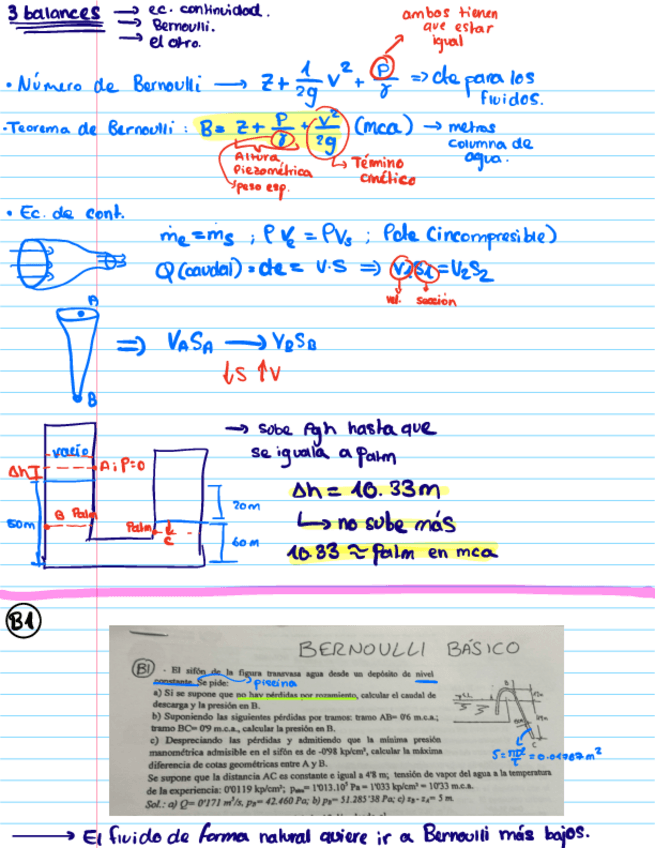 3 balances → ec. continuidad.
→ Bernoulli.
→ el otro.
ambos tienen
que estar
igual
• Número de Bernoulli → z + 1/2g v² + P/γ => cte para los
fluidos.
• Teorema de Bernoulli : B = z + P/γ + v²/2g (mca) → metros
columna de
agua.
Altura
Piezométrica
peso esp.
Término
cinético
• Ec. de cont.
ṁe = ṁs ; ρVe = ρVs ; ρcte (incompresible)
Q (caudal) = cte = v·S => V1S1 = V2S2
vel. sección
A
B
=> VASA → VBSB
↓S ↑V
→ sube ρgh hasta que
se iguala a Patm
vacío
Δh
A ; P=0
B Patm
Patm
C
20m
60m
Δh = 10.33m
↳ no sube más
10.33 ≈ Patm en mca
B1
BERNOULLI BÁSICO
B1 - El sifón de la figura transvasa agua desde un depósito de nivel
constante. Se pide: piscina
a) Si se supone que no hay pérdidas por rozamiento, calcular el caudal de
descarga y la presión en B.
b) Suponiendo las siguientes pérdidas por tramos: tramo AB= 0'6 m.c.a.;
tramo BC= 0'9 m.c.a., calcular la presión en B.
c) Despreciando las pérdidas y admitiendo que la mínima presión
manométrica admisible en el sifón es de -0'98 kp/cm², calcular la máxima
diferencia de cotas geométricas entre A y B.
Se supone que la distancia AC es constante e igual a 4'8 m; tensión de vapor del agua a la temperatura
de la experiencia: 0'0119 kp/cm²; patm= 1'013.10⁵ Pa = 1'033 kp/cm² = 10'33 m.c.a.
Sol.: a) Q= 0'171 m³/s, pB= 42.460 Pa; b) pB= 51.285'38 Pa; c) zB- zA= 5 m.
→ El fluido de forma natural quiere ir a Bernoulli más bajos.